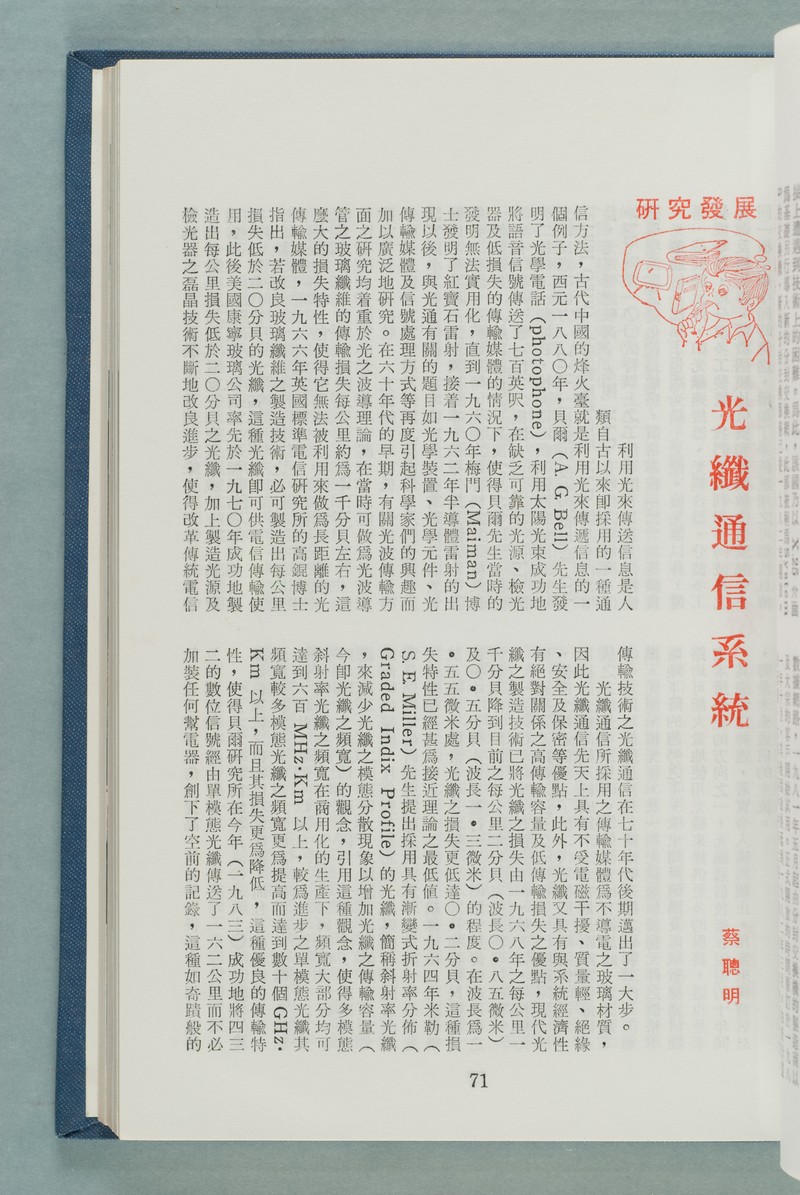 研究發展
光纖通信系統
蔡聰明
利用光來傳送信息是人
類自古以來卽採用的一種通
信方法，古代中國的烽火臺就是利用光來傳遞信息的一
個例子，西元一八八〇年，貝爾（A. G. Bell）先生發
明了光學電話（photophone），利用太陽光束成功地
將語音信號傳送了七百英呎，在缺乏可靠的光源、檢光
器及低損失的傳輸媒體的情況下，使得貝爾先生當時的
發明無法實用化，直到一九六〇年梅門（Maiman）博
士發明了紅寶石雷射，接着一九六二年半導體雷射的出
現以後，與光通有關的題目如光學裝置、光學元件、光
傳輸媒體及信號處理方式等再度引起科學家們的興趣而
加以廣泛地研究。在六十年代的早期，有關光波傳輸方
面之研究均着重於光之波導理論，在當時可做爲光波導
管之玻璃纖維的傳輸損失每公里約爲一千分貝左右，這
麼大的損失特性，使得它無法被利用來做爲長距離的光
傳輸媒體，一九六六年英國標準電信研究所的高錕博士
指出，若改良玻璃纖維之製造技術，必可製造出每公里
損失低於二〇分貝的光纖，這種光纖卽可供電信傳輸使
用，此後美國康寧玻璃公司率先於一九七〇年成功地製
造出每公里損失低於二〇分貝之光纖，加上製造光源及
檢光器之磊晶技術不斷地改良進步，使得改革傳統電信
傳輸技術之光纖通信在七十年代後期邁出了一大步。
光纖通信所採用之傳輸媒體爲不導電之玻璃材質，
因此光纖通信先天上具有不受電磁干擾、質量輕、絕緣
、安全及保密等優點，此外，光纖又具有與系統經濟性
有絕對關係之高傳輸容量及低傳輸損失之優點，現代光
纖之製造技術已將光纖之損失由一九六八年之每公里一
千分貝降到目前之每公里二分貝（波長〇•八五微米）
及〇•五分貝（波長一•三微米）的程度。在波長爲一
•五五微米處，光纖之損失更低達〇•二分貝，這種損
失特性已經甚爲接近理論之最低値。一九六四年米勒（
S. E. Miller）先生提出採用具有漸變式折射率分佈（
Graded Indix Profile）的光纖，簡稱斜射率光纖
，來減少光纖之模態分散現象以增加光纖之傳輸容量（
今卽光纖之頻寬）的觀念，引用這種觀念，使得多模態
斜射率光纖之頻寬在商用化的生產下，頻寬大部分均可
達到六百 MHz·Km 以上，較爲進步之單模態光纖其
頻寬較多模態光纖之頻寬更爲提高而達到數十個 GHz·
Km 以上，而且其損失更爲降低，這種優良的傳輸特
性，使得貝爾研究所在今年（一九八三）成功地將四三
二的數位信號經由單模態光纖傳送了一六二公里而不必
加裝任何幫電器，創下了空前的記錄，這種如奇蹟般的
71